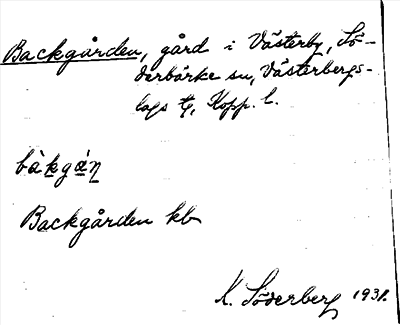 Backgården, gård i Västerby, Sö-
derbärke sn, Västerbergs-
lags tg, Kopp. l.
bàkgáṇ
Backgården kb
K. Söderberg 1931.